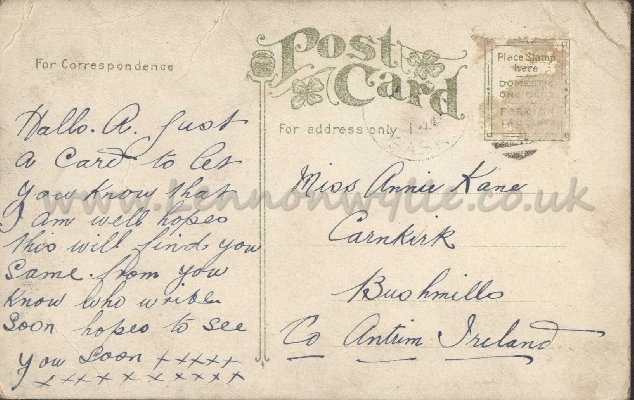 Post
Card
For Correspondence
For address only
Place Stamp
here
DOMESTIC
ONE CENT
FOREIGN
Hallo. A. Just
a Card to let
you know that
I am well hopes
this will find you
same. from you
know who write
soon hopes to see
you soon xxxxx
xxxxxxxxxx
Miss Annie Kane
Carnkirk
Bushmills
Co Antrim Ireland
www.lennonwylie.co.uk